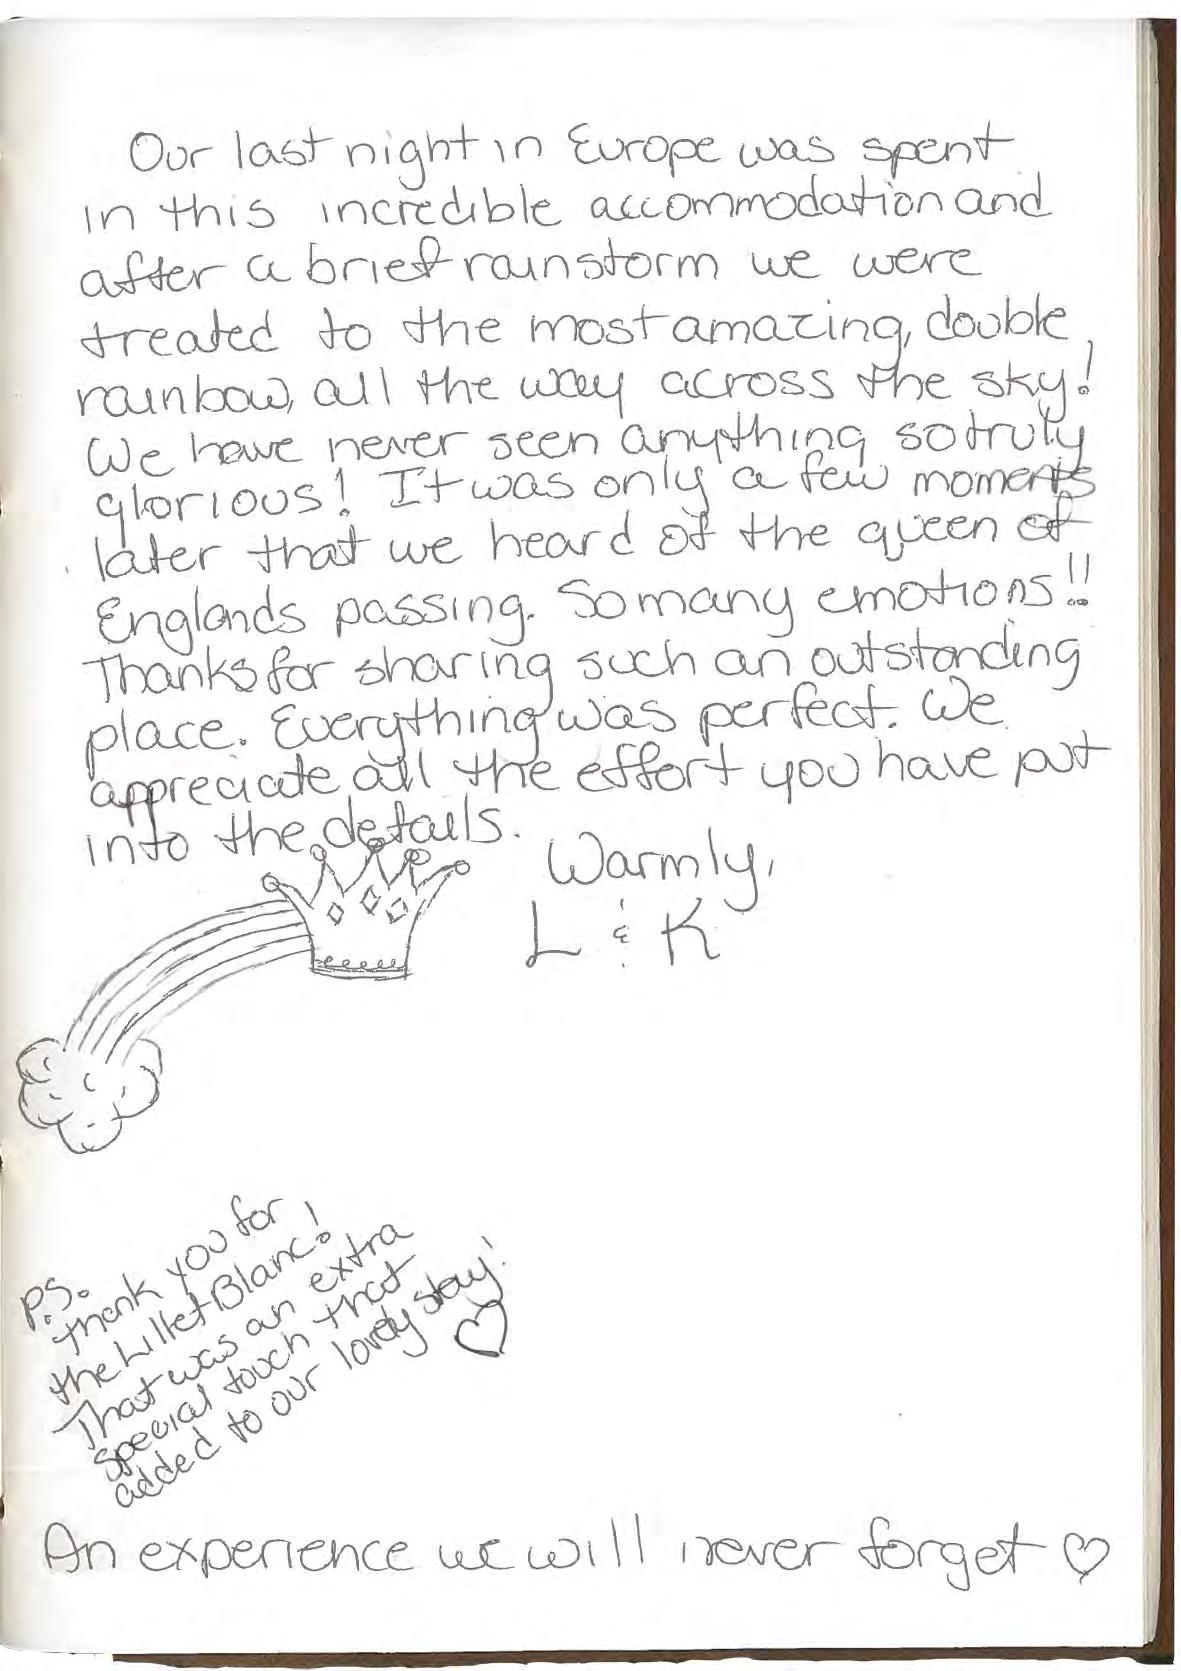 Our last night in Europe was spent
in this incredible accommodation and
after a brief rainstorm we were
treated to the most amazing, double,
rainbow, all the way across the sky!
We have never seen anything so truly
glorious! It was only a few moments
later that we heard of the queen of
Englands passing. So many emotions!!
Thanks for sharing such an outstanding
place. Everything was perfect. We
appreciate all the effort you have put
into the details.
Warmly,
L & K
P.S.
Thank you for
the Lillet Blanc!
That was an extra
special touch that
added to our lovely stay!
An experience we will never forget ♡